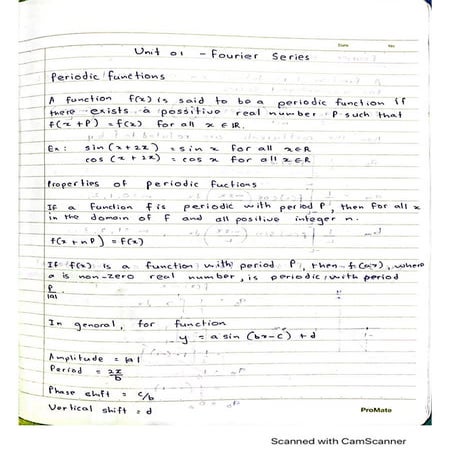 Date No
Unit 01 - Fourier Series
Periodic functions
A function f(x) is said to be a periodic function if
there exists a possitive real number P such that
f(x+P) = f(x) for all x ∈ IR.
Ex: sin (x+2π) = sin x for all x∈R
cos (x+2π) = cos x for all x∈R
Properties of periodic fuctions
If a function f is periodic with period P, then for all x
in the domain of f and all positive integer n.
f(x+nP) = f(x)
If f(x) is a function with period P, then f(ax), where
a is non-zero real number, is periodic with period
P
|a|
In general, for function
y = a sin (bx-c) + d
Amplitude = |a|
Period = 2π/b
Phase shift = c/b
Vertical shift = d
ProMate
Scanned with CamScanner